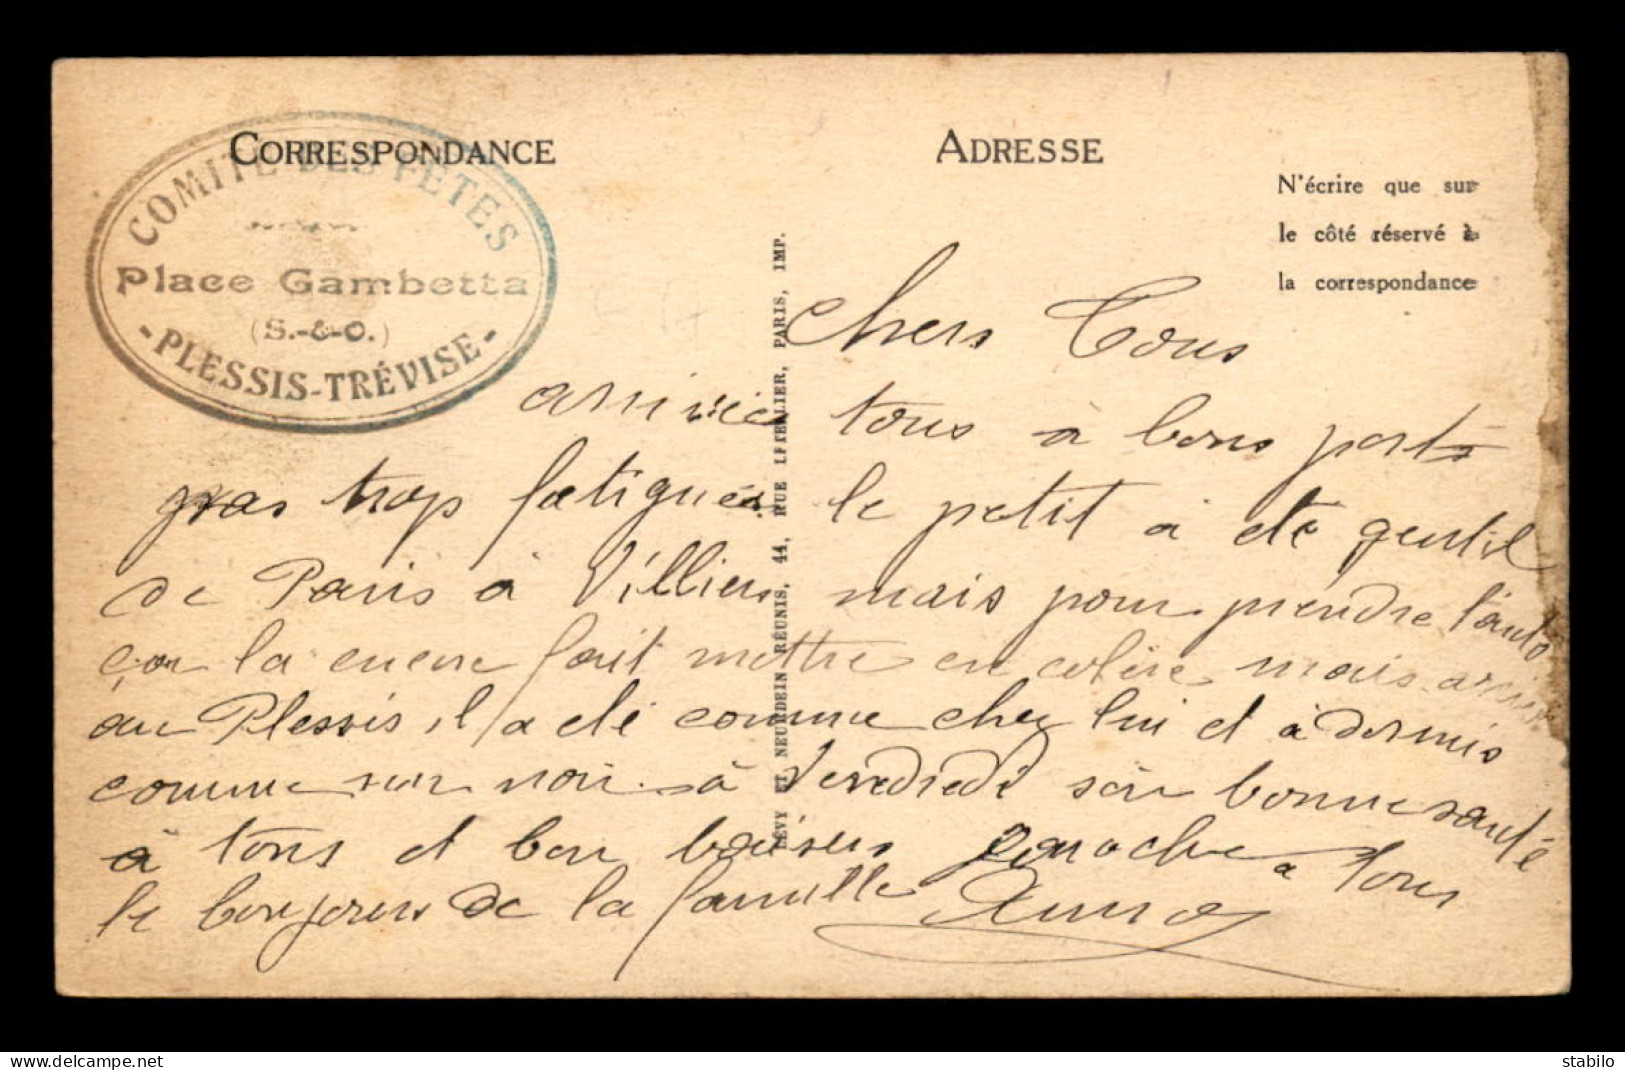 CORRESPONDANCE
ADRESSE
COMITÉ DES FÊTES
Place Gambetta
(S.-&-O.)
- PLESSIS-TRÉVISE -
N'écrire que sur
le côté réservé à
la correspondance
LÉVY ET NEURDEIN RÉUNIS, 44, RUE LETELLIER, PARIS, IMP.
chers Tous
arrivée tous à bons ports
pas trop fatigués le petit à été gentil
de Paris à Villiers mais pour prendre l'auto
ça la encore fait mettre en colère mais arrivé
au Plessis il a été comme chez lui et à dormis
comme un noir. à Vendredi soir bonne santé
à tous et bon baisers à tous
le bonjours de la famille